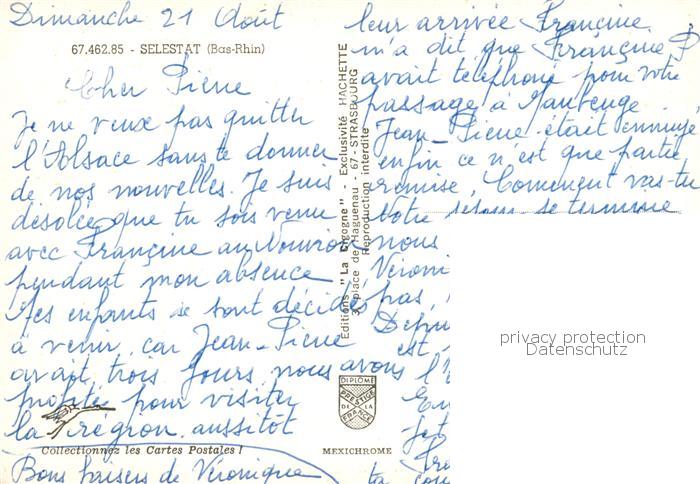 Dimanche 21 Août
67.462.85 - SELESTAT (Bas-Rhin)
Cher Pierre
Je ne veux pas quitter
l'Alsace sans te donner
de nos nouvelles. Je suis
désolée que tu sois venu
avec Françine au Nouvion
pendant mon absence
Mes enfants se sont décidés
à venir, car Jean-Pierre
avait trois jours, nous avons
profité pour visiter
la région. aussitôt
Collectionnez les Cartes Postales !
Bons baisers de Véronique
leur arrivée Françine
m'a dit que Françine P
avait téléphoné pour votre
passage à Maubeuge.
Jean-Pierre était ennuyé
enfin ce n'est que partie
remise, Comment vas-tu
Votre séjour se termine
nous
Véroni
pas,
Depui
est
l'
En
ta com
Editions "La Cigogne" - Exclusivité HACHETTE
3, place de Haguenau - 67 - STRASBOURG
Reproduction interdite
DIPLOME
PRESTIGE
DE LA
FRANCE
MEXICHROME
privacy protection
Datenschutz